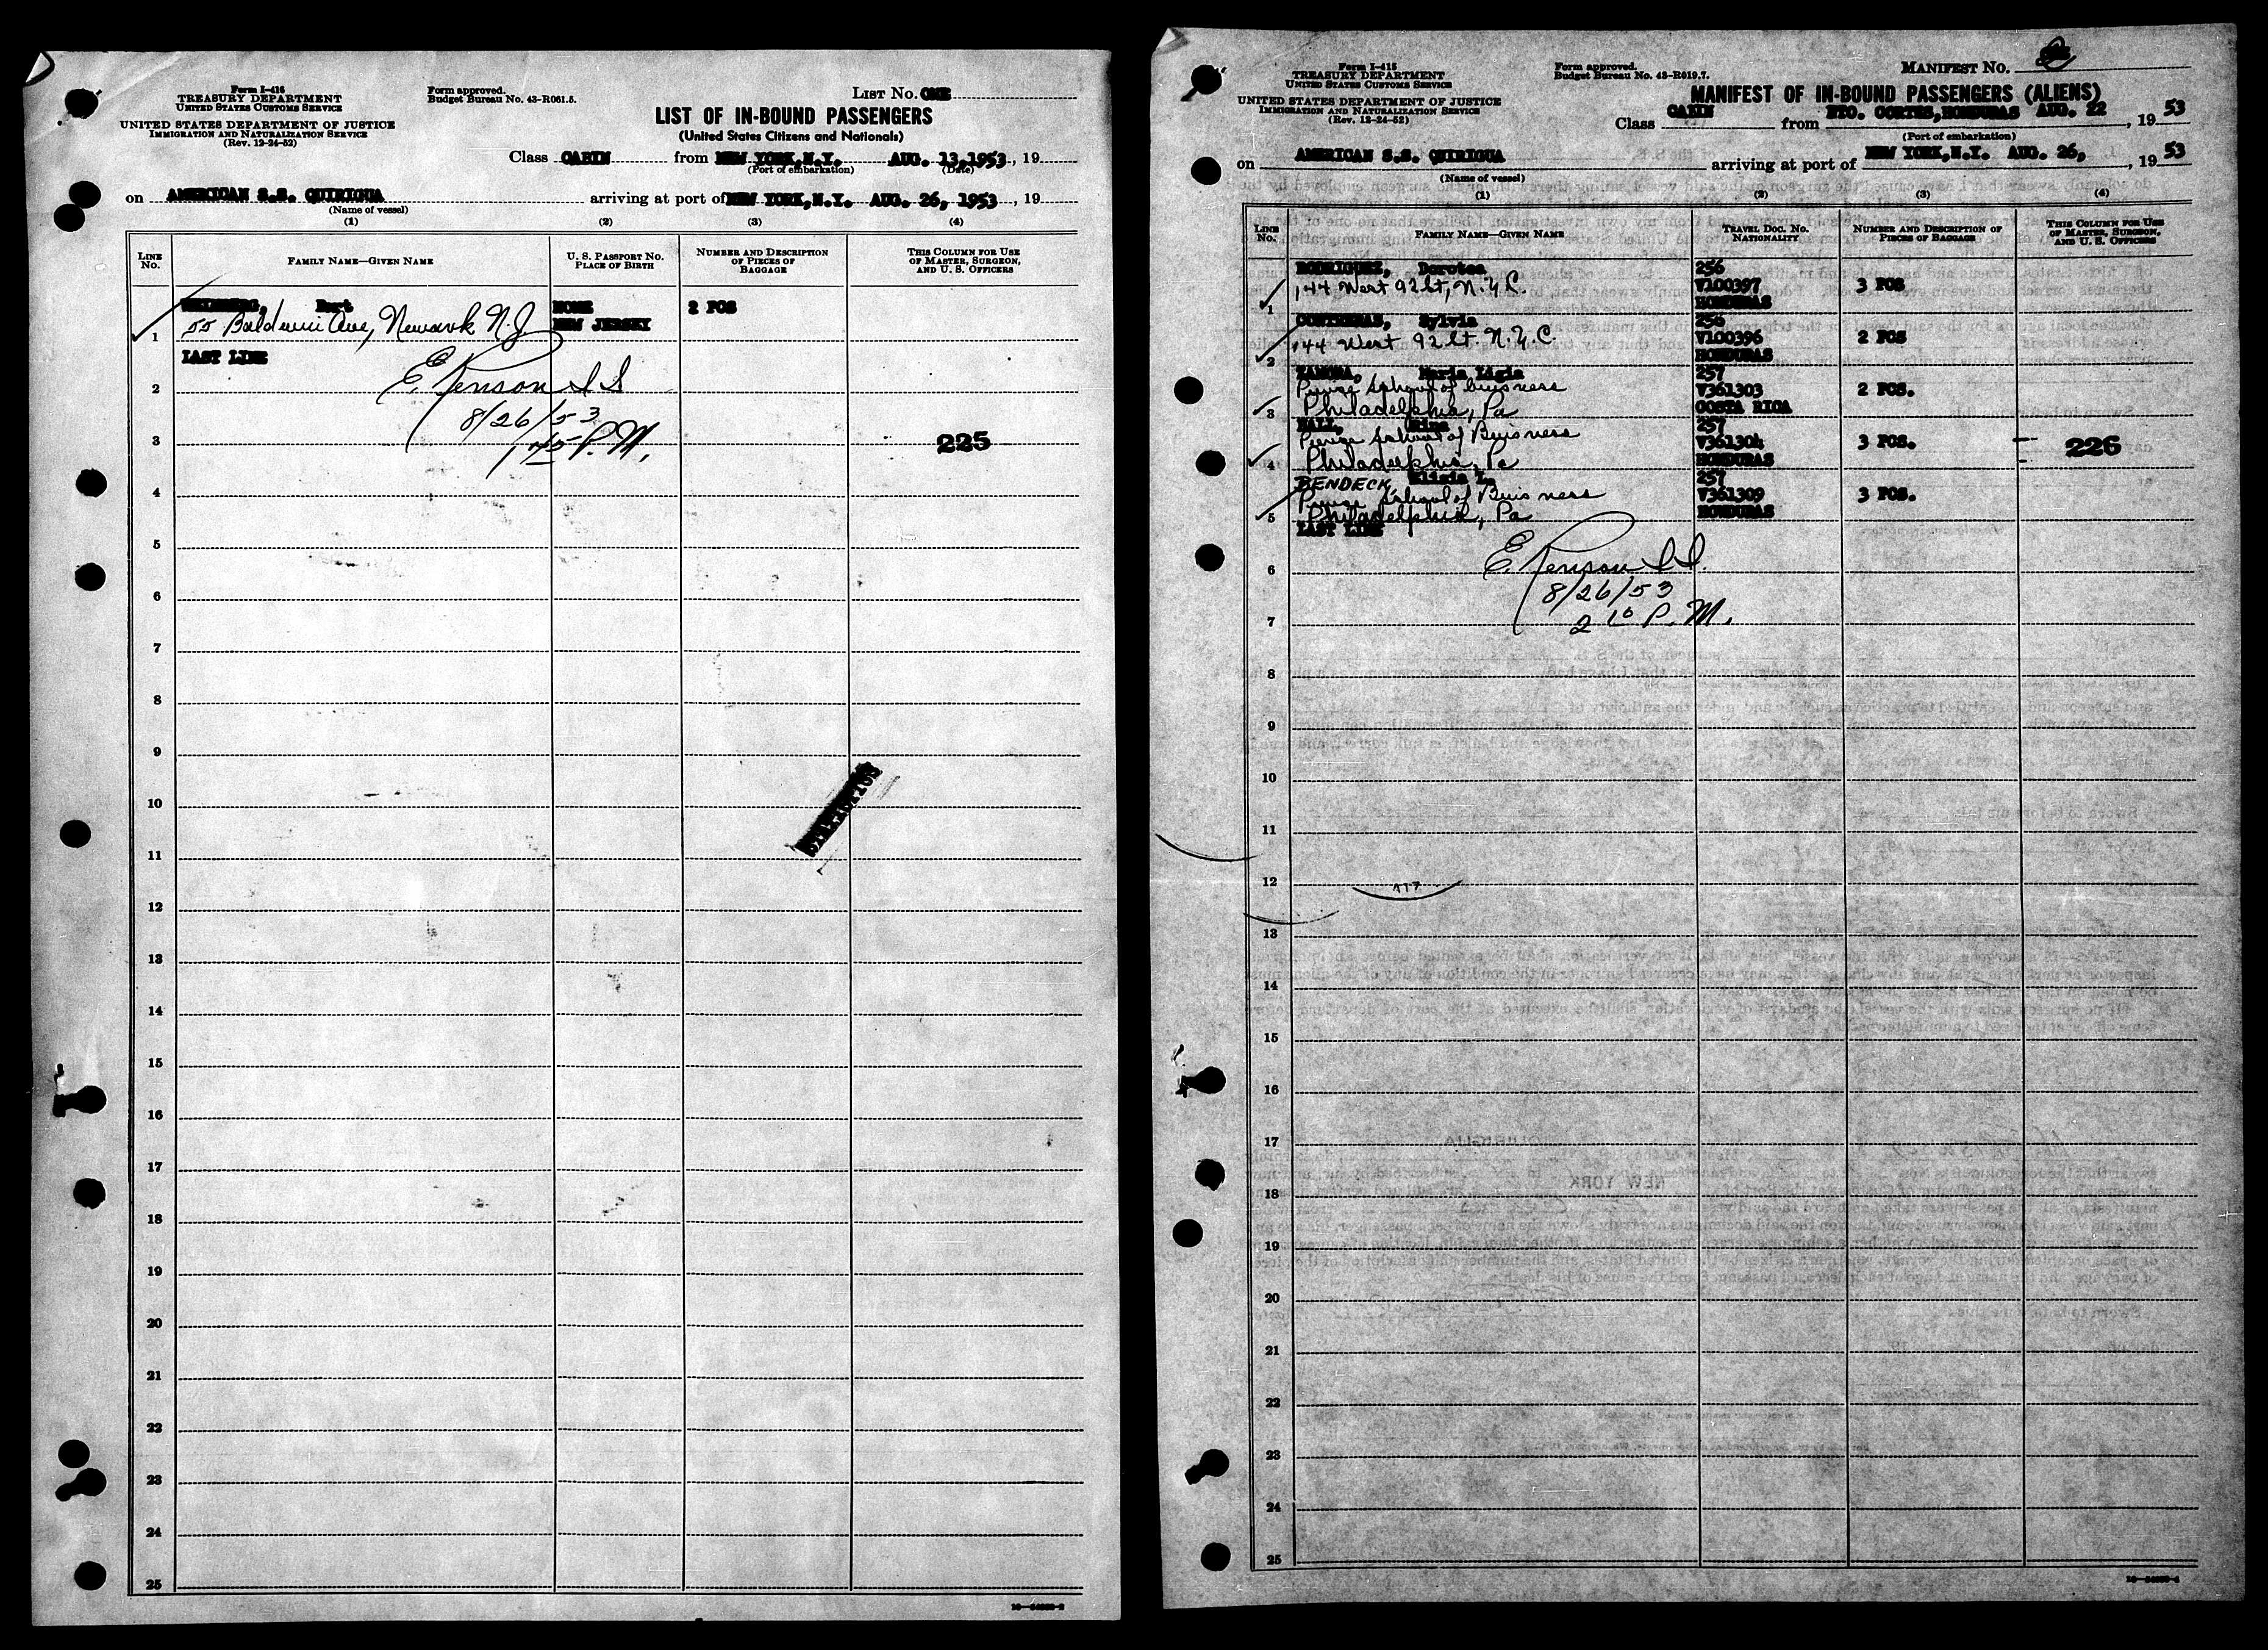 Form I-415
TREASURY DEPARTMENT
UNITED STATES CUSTOMS SERVICE
UNITED STATES DEPARTMENT OF JUSTICE
IMMIGRATION AND NATURALIZATION SERVICE
(Rev. 12-24-52)
Form approved.
Budget Bureau No. 43-R061.5.
LIST No. ONE
LIST OF IN-BOUND PASSENGERS
(United States Citizens and Nationals)
Class CABIN from NEW YORK, N.Y. AUG. 13, 1953, 19
(Port of embarkation) (Date)
on AMERICAN S.S. QUIRIGUA arriving at port of NEW YORK, N.Y. AUG. 26, 1953, 19
(Name of vessel)
(1) (2) (3) (4)
LINE No. FAMILY NAME—GIVEN NAME U. S. PASSPORT No. PLACE OF BIRTH NUMBER AND DESCRIPTION OF PIECES OF BAGGAGE THIS COLUMN FOR USE OF MASTER, SURGEON, AND U. S. OFFICERS
Bert NONE 2 PCS
1 55 Baldwin Ave, Newark N.J. NEW JERSEY
LAST LINE
2 E. Penson I I
8/26/53
3 1 45 P.M. 225
4
5
6
7
8
9
10
11
12
13
14
15
16
17
18
19
20
21
22
23
24
25
Form I-415
TREASURY DEPARTMENT
UNITED STATES CUSTOMS SERVICE
UNITED STATES DEPARTMENT OF JUSTICE
IMMIGRATION AND NATURALIZATION SERVICE
(Rev. 12-24-52)
Form approved.
Budget Bureau No. 43-R019.7.
MANIFEST No. 2
MANIFEST OF IN-BOUND PASSENGERS (ALIENS)
Class CABIN from PTO. CORTES, HONDURAS AUG. 22, 19 53
(Port of embarkation)
on AMERICAN S.S. QUIRIGUA arriving at port of NEW YORK, N.Y. AUG. 26, 19 53
(Name of vessel)
(1) (2) (3) (4)
LINE No. FAMILY NAME—GIVEN NAME TRAVEL DOC. No. NATIONALITY NUMBER AND DESCRIPTION OF PIECES OF BAGGAGE THIS COLUMN FOR USE OF MASTER, SURGEON, AND U. S. OFFICERS
RODRIGUEZ, Dorotea 256
144 West 92 St, N.Y.C. V100397 3 PCS
1 HONDURAS
CONTRERAS, Sylvia 256
144 West 92 St. N.Y.C. V100396 2 PCS
2 HONDURAS
Maria Ligia 257
Peirce School of Buisness V361303 2 PCS.
3 Philadelphia, Pa COSTA RICA
HALL, 257
Peirce School of Buisness V361304 3 PCS. 226
4 Philadelphia, Pa HONDURAS
BENDECK, Elisia L. 257
Peirce School of Buisness V361309 3 PCS.
5 Philadelphia, Pa HONDURAS
LAST LINE
6 E. Penson I I.
8/26/53
7 2 10 P.M.
8
9
10
11
12
13
14
15
16
17
NEW YORK
18
19
20
21
22
23
24
25